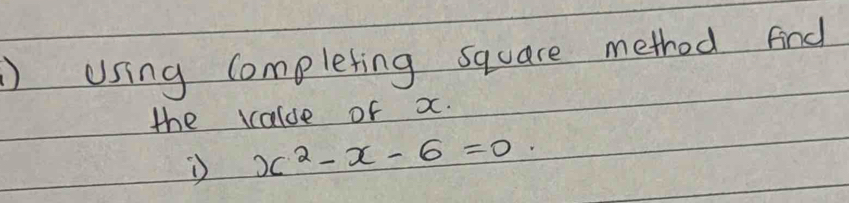 i) Using Completing Square method find
the value of x.
i) x² - x - 6 = 0.